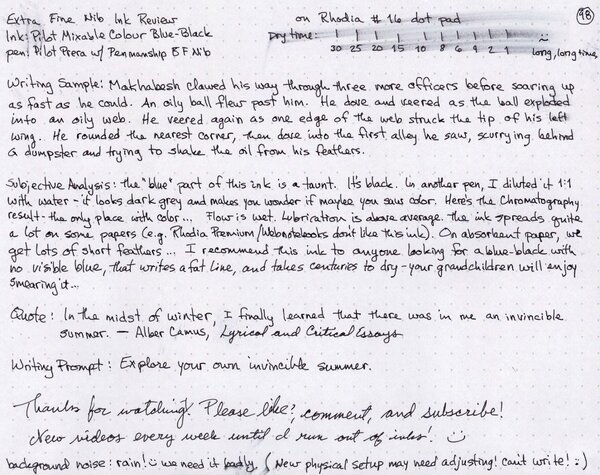 Extra Fine Nib Ink Review on Rhodia #16 dot pad 98
Ink: Pilot Mixable Colour Blue-Black Dry time:
pen: Pilot Prera w/ Penmanship EF Nib 30 25 20 15 10 8 6 4 2 1 long, long time
Writing Sample: Makhabesh clawed his way through three more officers before soaring up
as fast as he could. An oily ball flew past him. He dove and veered as the ball exploded
into an oily web. He veered again as one edge of the web struck the tip of his left
wing. He rounded the nearest corner, then dove into the first alley he saw, scurrying behind
a dumpster and trying to shake the oil from his feathers.
Subjective Analysis: the "blue" part of this ink is a taunt. It's black. In another pen, I diluted it 1:1
with water - it looks dark grey and makes you wonder if maybe you saw color. Here's the Chromatography
result - the only place with color... Flow is wet. Lubrication is above average. the ink spreads quite
a lot on some papers (e.g. Rhodia Premium/Webnotebooks don't like this ink). On absorbent paper, we
get lots of short feathers... I recommend this ink to anyone looking for a blue-black with
no visible blue, that writes a fat line, and takes centuries to dry - your grandchildren will enjoy
smearing it...
Quote: In the midst of winter, I finally learned that there was in me an invincible
summer. — Alber Camus, Lyrical and Critical Essays
Writing Prompt: Explore your own invincible summer.
Thanks for watching! Please like, comment, and subscribe!
New videos every week until I run out of inks! :)
background noise: rain! :) we need it badly (New physical setup may need adjusting! can't write! :)